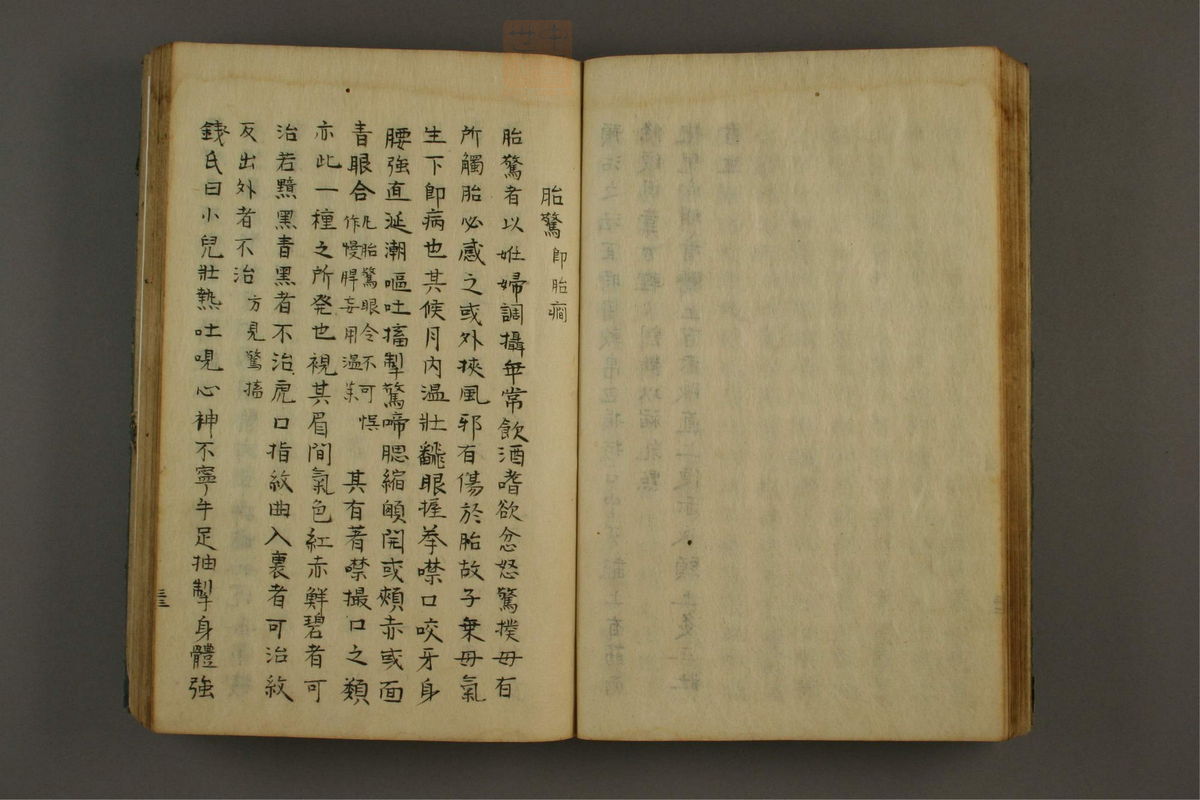 胎驚 即胎癇
胎驚者以姙婦調攝乖常飲酒嗜欲忿怒驚撲母有
所觸胎必感之或外挾風邪有傷於胎故子乗母氣
生下即病也其候月内温壯飜眼握拳噤口咬牙身
腰強直涎潮嘔吐搐掣驚啼腮縮顖開或頰赤或面
青眼合
凡胎驚眼合不可悞
作慢脾妄用温薬
其有著噤撮口之類
亦此一種之所発也視其眉間氣色紅赤鮮碧者可
治若黯黑青黑者不治虎口指紋曲入裏者可治紋
反出外者不治 方見驚搐
錢氏曰小兒壯熱吐哯心神不寧手足抽掣身體強